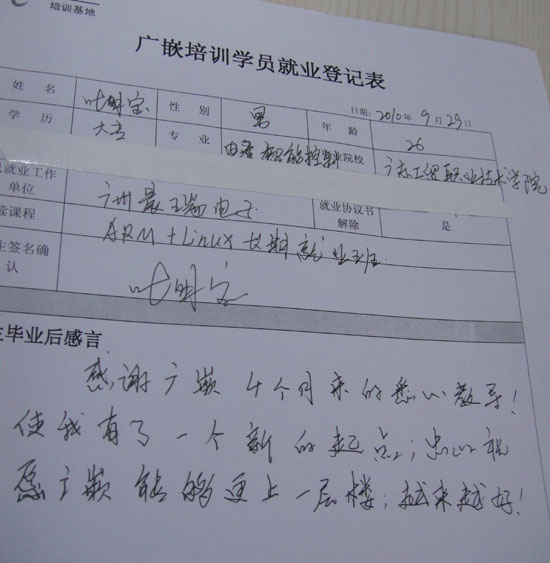 培训基地
广嵌培训学员就业登记表
日期: 2010年 9月 29日
姓 名 叶明宝 性 别 男 年 龄 26
学 历 大专 专 业 智能控制 业院校 职业技术学院
就业工作单位 广州景瑞电子 就业协议书解除 是
读课程 ARM+Linux 长期就业班
生签名确认 叶明宝
毕业后感言
感谢广嵌4个月来的悉心教导!
使我有了一个新的起点;忠心祝
愿广嵌能够更上一层楼;越来越好!